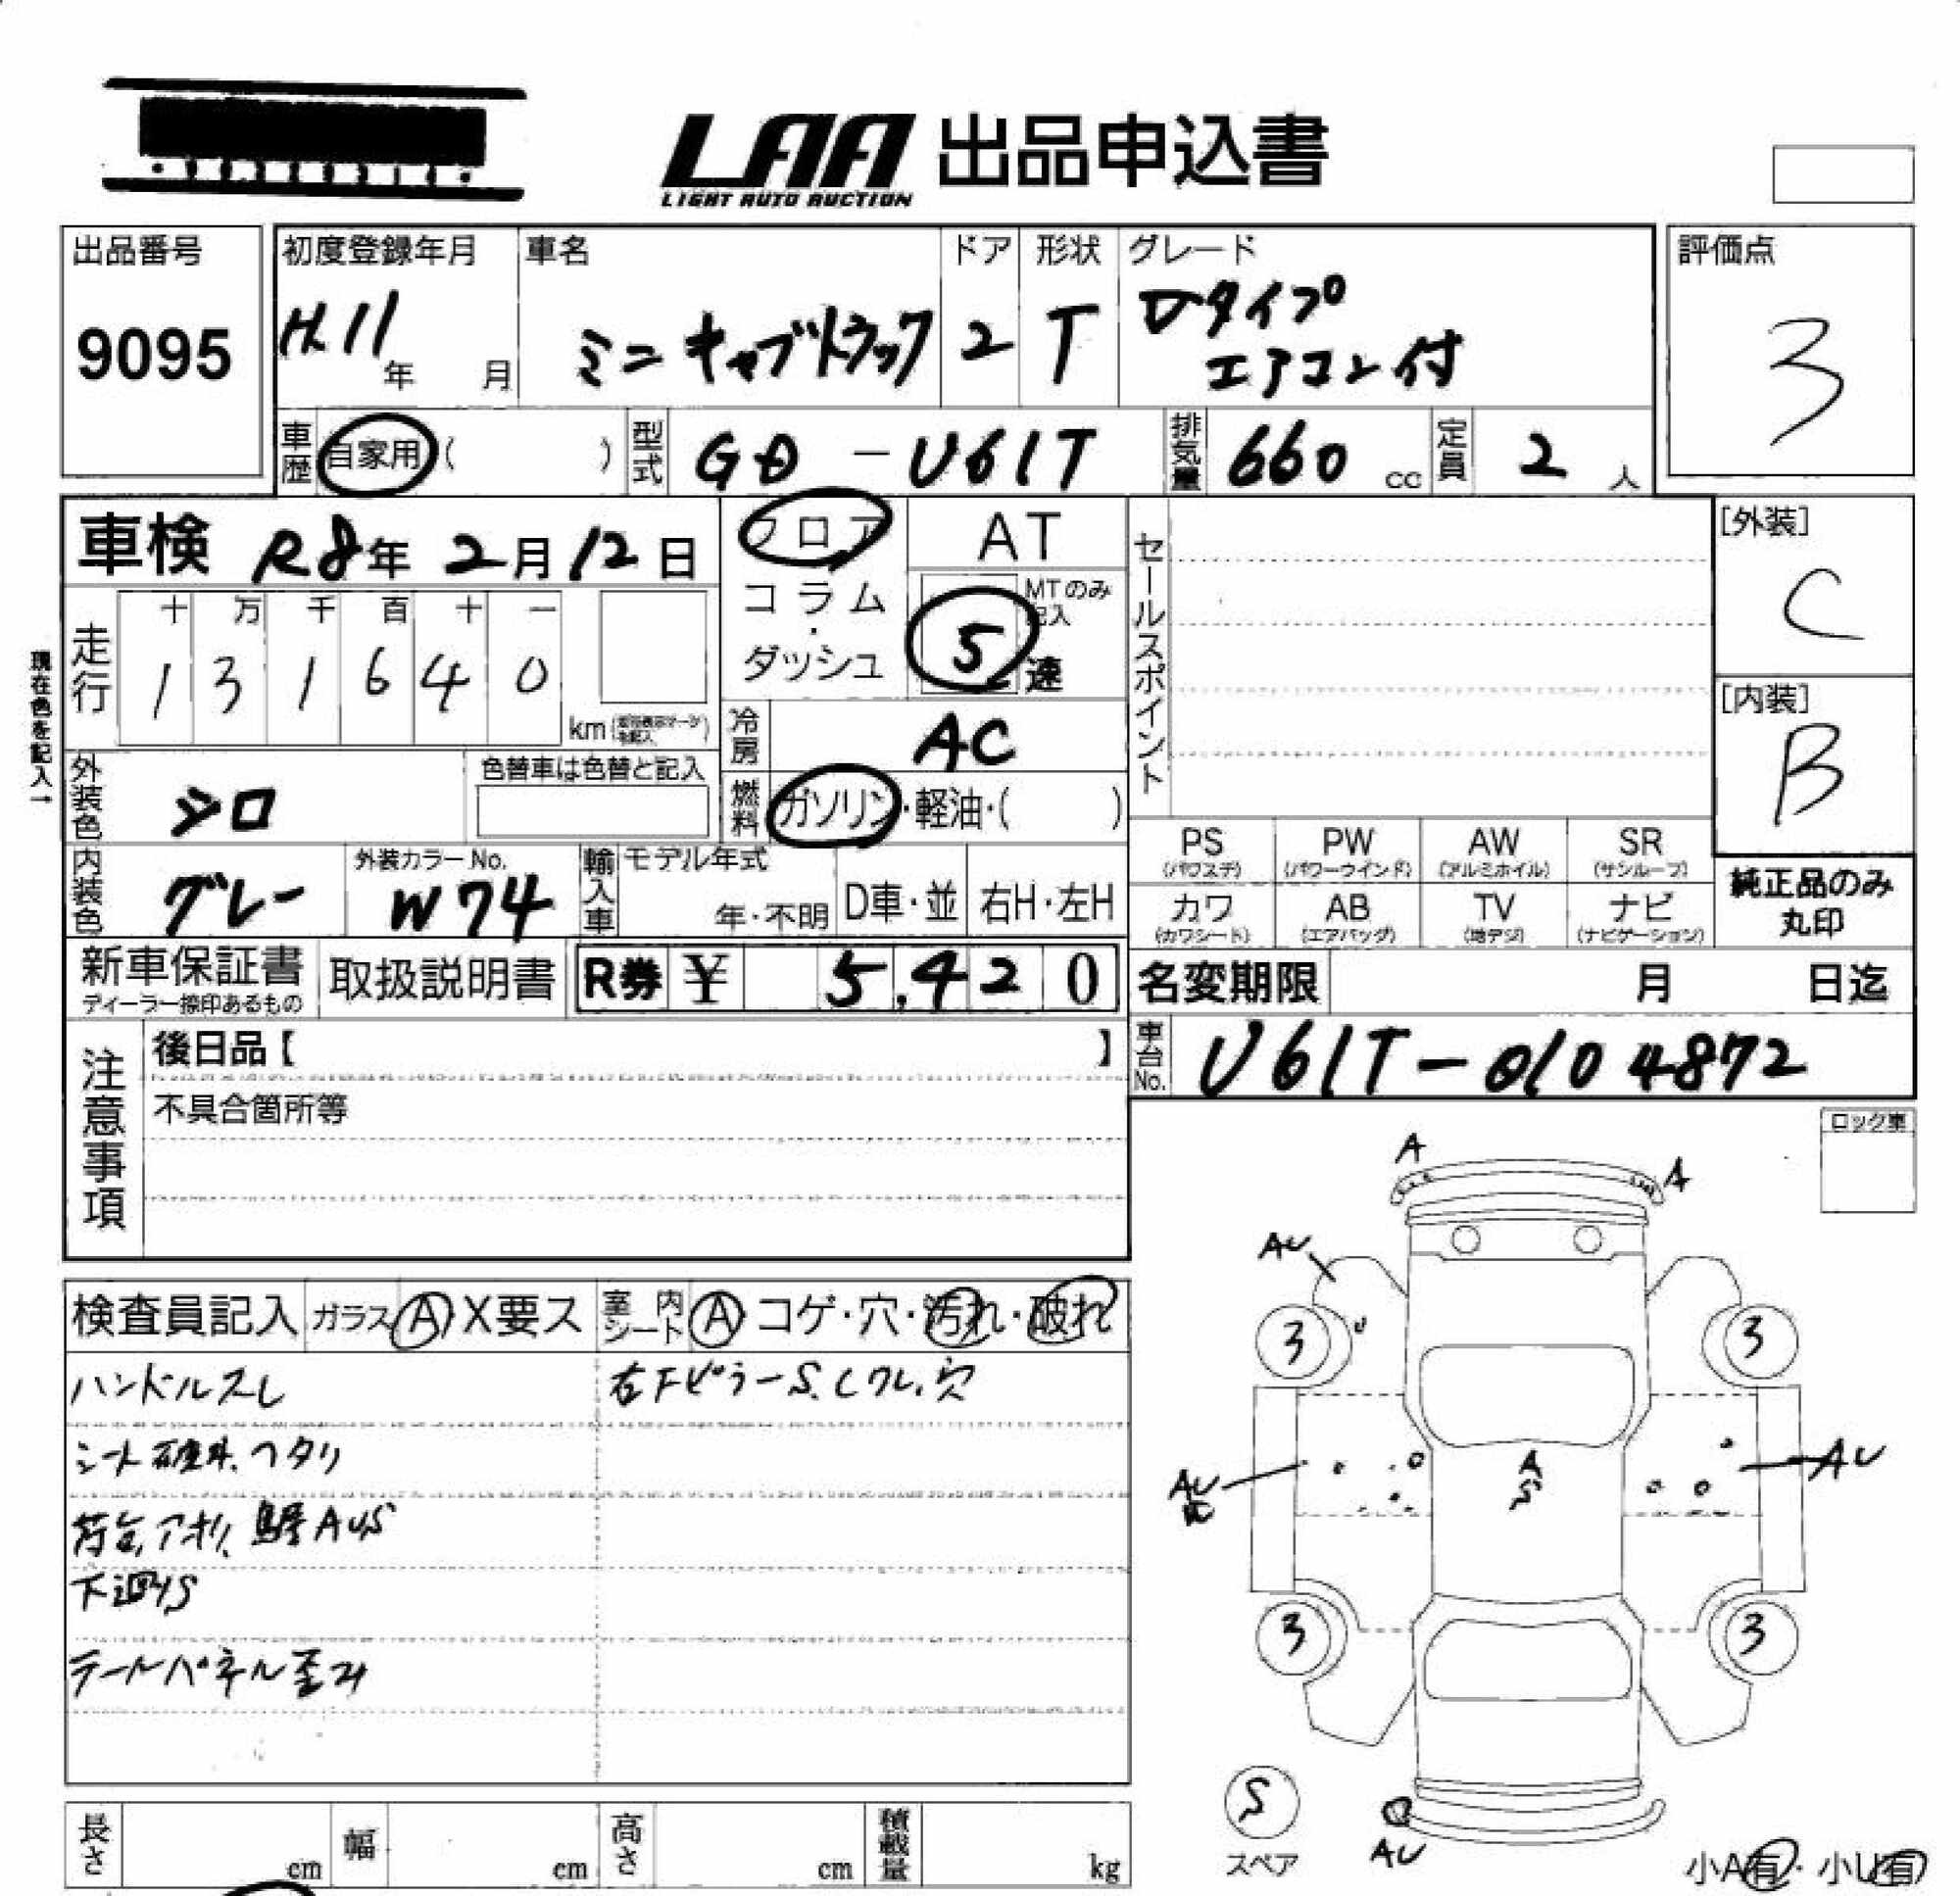 LAA 出品申込書
LIGHT AUTO AUCTION
出品番号
9095
初度登録年月
H.11年 月
車名
ミニキャブトラック
ドア
2
形状
T
グレード
Vタイプ
エアコン付
評価点
3
車歴 自家用 ( )
型式 GD-U61T
排気量 660 cc
定員 2 人
車検 R8年2月12日
フロア
コラム
・
ダッシュ
AT
MTのみ記入
5 速
セールスポイント
[外装]
C
[内装]
B
現在色を記入→
走行
十 万 千 百 十 一
1 3 1 6 4 0
km
冷房 AC
外装色 シロ
色替車は色替と記入
燃料 ガソリン・軽油・( )
内装色 グレー
外装カラーNo.
W74
輸入車
モデル年式
年・不明
D車・並
右H・左H
PS (パワステ)
PW (パワーウインド)
AW (アルミホイル)
SR (サンルーフ)
カワ (カワシート)
AB (エアバッグ)
TV (地デジ)
ナビ (ナビゲーション)
純正品のみ
丸印
新車保証書
ディーラー捺印あるもの
取扱説明書
R券 ¥ 5,420
名変期限 月 日迄
車台No. U61T-0104872
注意事項
後日品【 】
不具合箇所等
ロック車
検査員記入 ガラス A X要ス
室内シート A コゲ・穴・汚れ・破れ
ハンドルスレ
右Fピラー S.
シート破れ、ヘタリ
荷台、アオリ、鳥居AUS
下廻りS
テールパネル歪み
A
A
AU
3
U
3
AU
A
S
AU
3
3
S
スペア
AU
小A有・小U有
長さ cm
幅 cm
高さ cm
積載量 kg